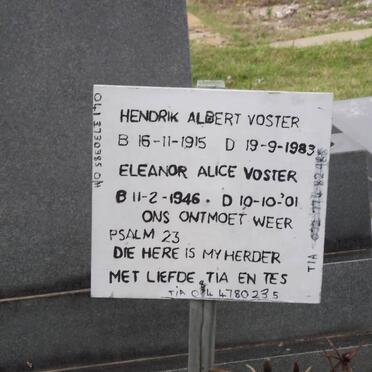 HENDRIK ALBERT VOSTER
B 16-11-1915 D 19-9-1983
ELEANOR ALICE VOSTER
B 11-2-1946 . D 10-10-'01
ONS ONTMOET WEER
PSALM 23
DIE HERE IS MY HERDER
MET LIEFDE TIA EN TES
TIA
TIA